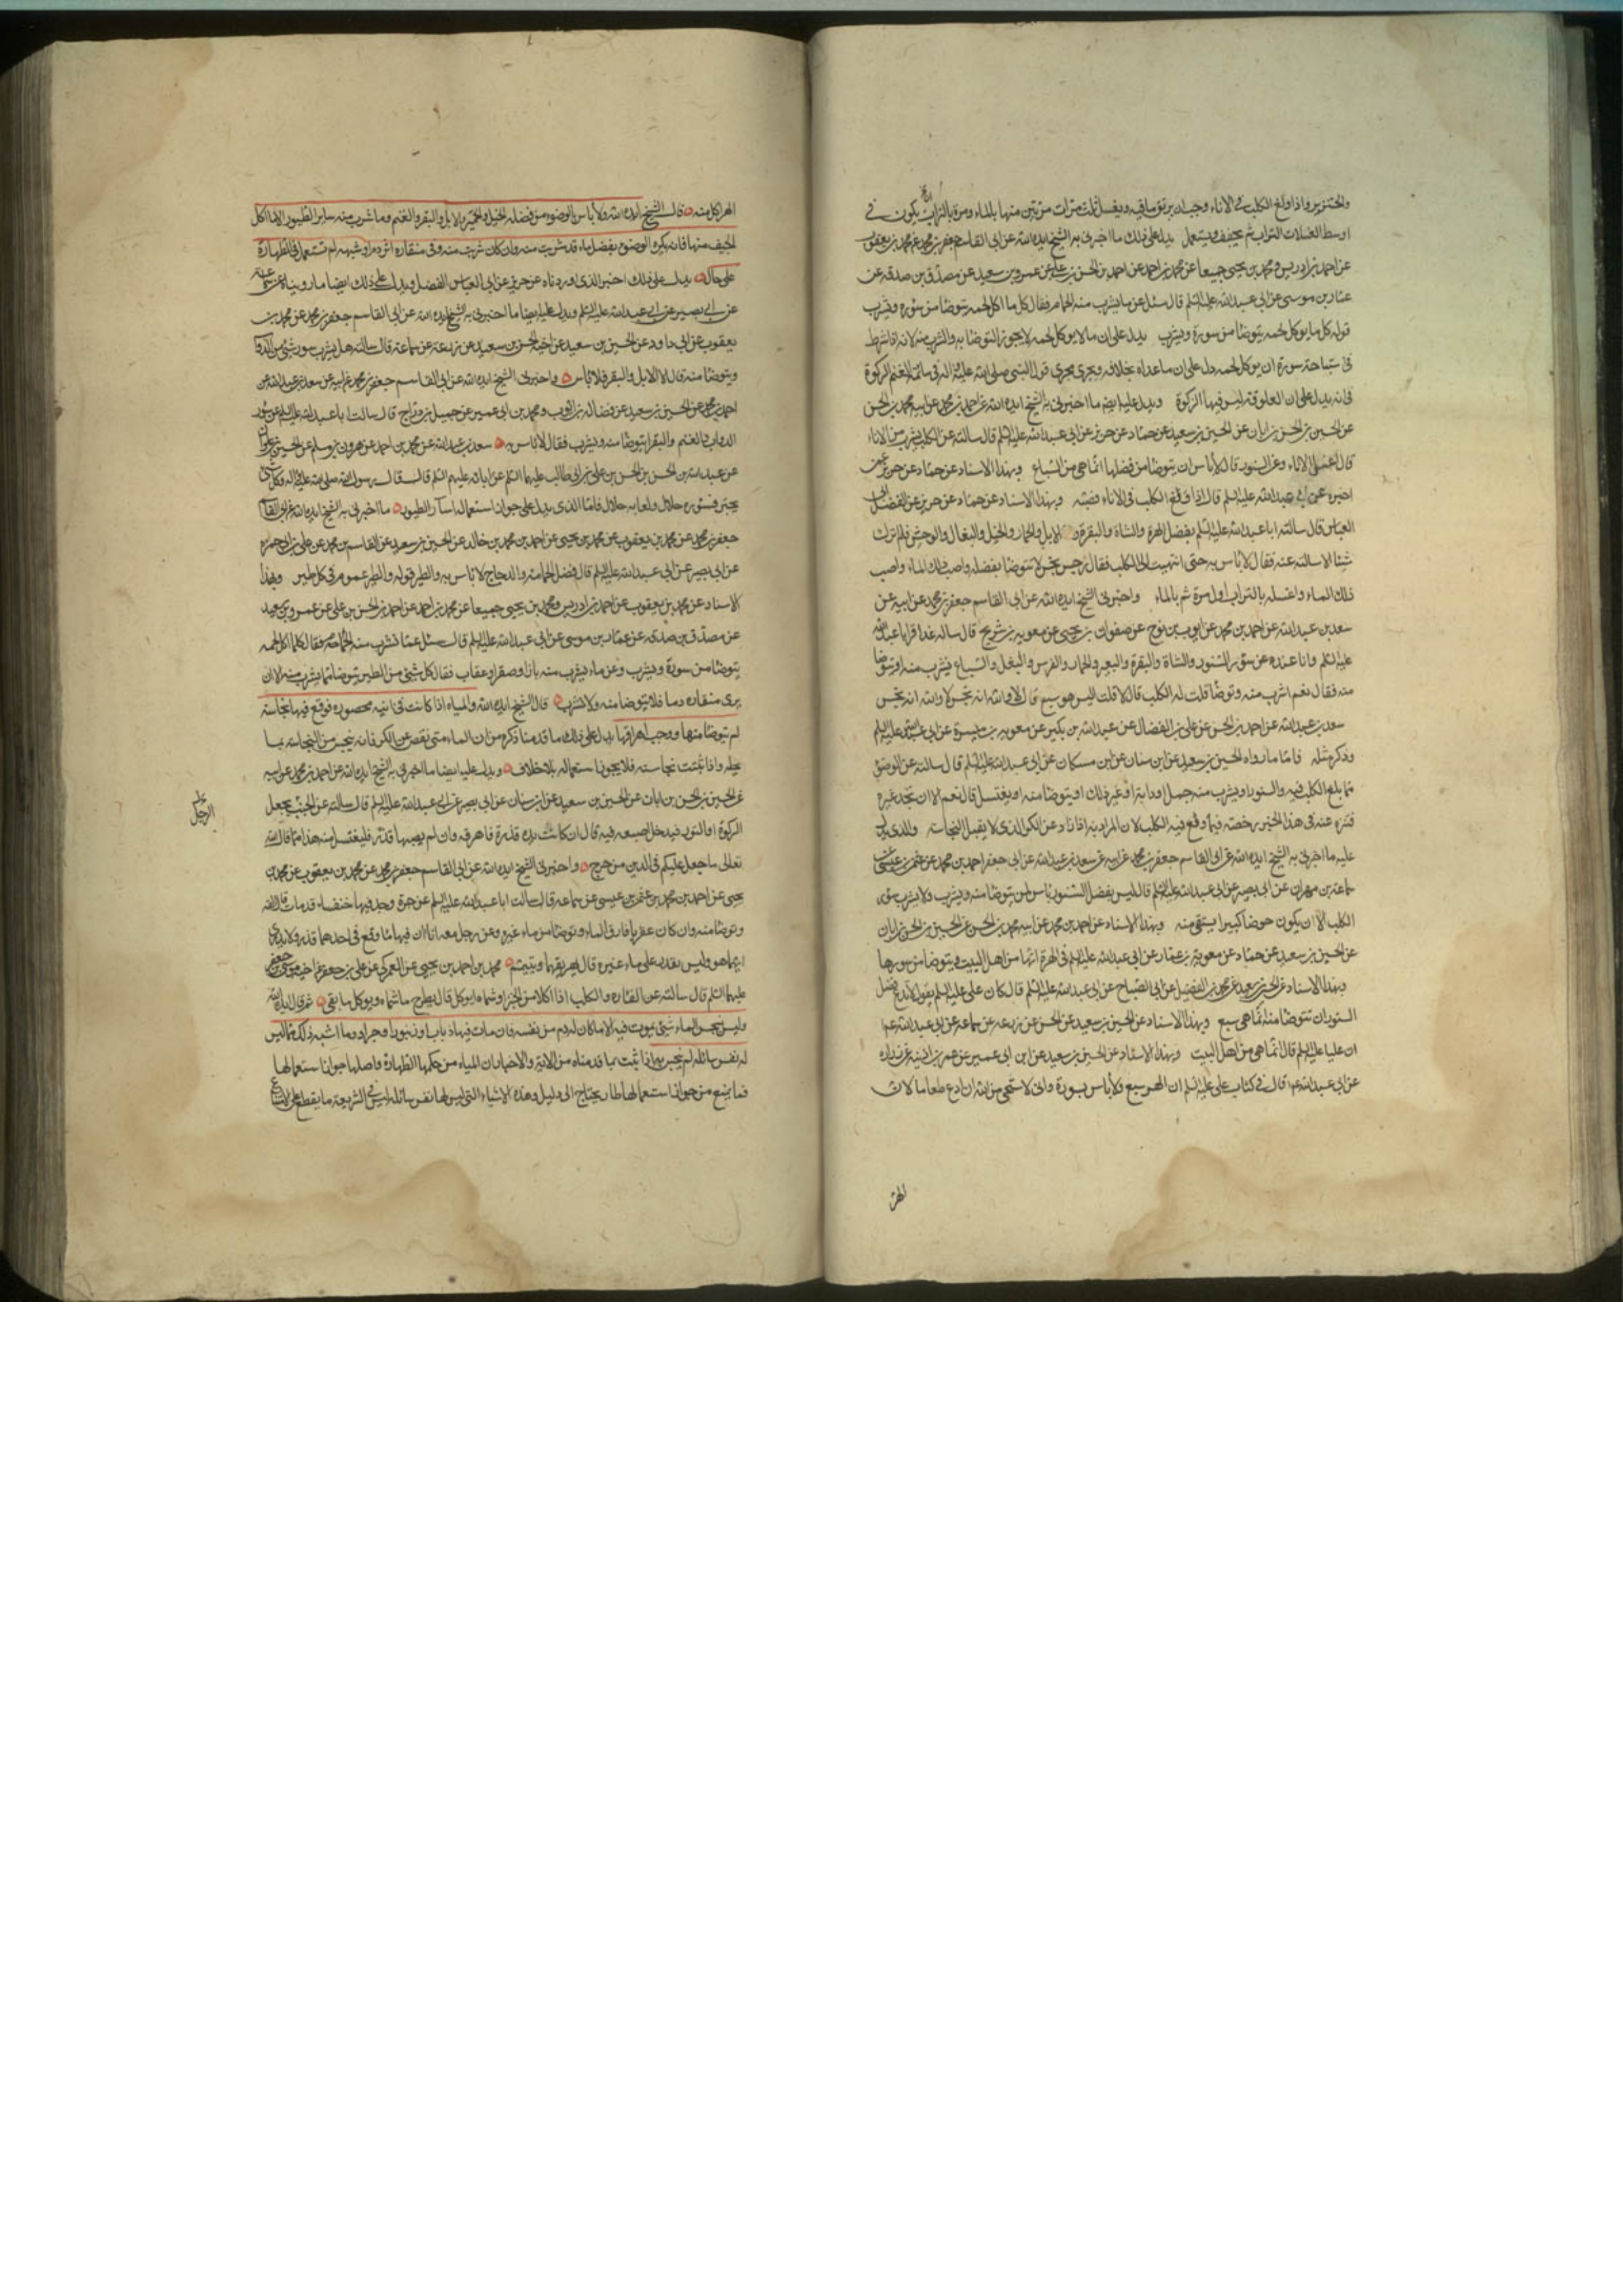 والخنزير واذا ولغ الكلب في الاناء وجب ان يهرق ما فيه ويغسل ثلث مرات مرتين منها بالماء ومرة بالتراب يكون في
اوسط الغسلات التراب ثم يجفف ويستعمل يدل على ذلك ما اخبرنى به الشيخ ايده الله عن ابى القاسم جعفر بن محمد عن محمد بن يعقوب
عن احمد بن ادريس ومحمد بن يحيى جميعا عن محمد بن احمد عن احمد بن الحسن بن على عن عمرو بن سعيد عن مصدق بن صدقه عن
عمار بن موسى عن ابى عبد الله عليه السلم قال سئل عن ما يشرب منه الحمام فقال كل ما اكل لحمه يتوضا من سوره ويشرب
قوله كل ما يوكل لحمه يتوضا من سورة ويشرب يدل على ان ما لا يوكل لحمه لا يجوز التوضا به والشرب منه لانه اذا شرط
فى استباحة سورة ان يوكل لحمه دل على ان ما عداه بخلافه ويجرى مجرى قول النبى صلى الله عليه واله فى سائمة الغنم الزكوة
فانه يدل على ان المعلوفة ليس فيها الزكوة ويدل عليه ايضا ما اخبرنى به الشيخ ايده الله عن احمد بن محمد عن ابيه محمد بن الحسن
عن الحسين بن الحسن بن ابان عن الحسين بن سعيد عن حماد عن حريز عن ابى عبد الله عليه السلم قال سالته عن الكلب يشرب من الاناء
قال اغسل الاناء وعن السنور قال لا باس ان يتوضا من فضلها انما هى من السباع وبهذا الاسناد عن حماد عن حريز عمن
اخبره عن ابى عبد الله عليه السلم قال اذا ولغ الكلب فى الاناء فصبه وبهذا الاسناد عن حماد عن حريز عن الفضل ابى
العباس قال سالت ابا عبد الله عليه السلم بفضل الهرة والشاة والبقرة و الابل والحمار والخيل والبغال والوحش فلم اترك
شيئا الا سالته عنه فقال لا باس به حتى انتهيت الى الكلب فقال رجس نجس لا تتوضا بفضله واصبب ذلك الماء واصب
ذلك الماء واغسله بالتراب اول مرة ثم بالماء واخبرنى الشيخ ايده الله عن ابى القاسم جعفر بن محمد عن ابيه عن
سعد بن عبد الله عن احمد بن محمد عن ايوب بن نوح عن صفوان بن يحيى عن معويه بن شريح قال ساله عذافر ابا عبد الله
عليه السلم وانا عنده عن سؤر السنور والشاة والبقرة والبعير والحمار والفرس والبغل والسباع يشرب منه او يتوضا
منه فقال نعم اشرب منه وتوضا قلت له الكلب قال لا قلت اليس هو سبع قال لا والله انه نجس لا والله انه نجس
سعد بن عبد الله عن احمد بن الحسن عن على بن الفضال عن عبد الله بن بكير عن معويه بن ميسرة عن ابى عبد الله عليه السلم
وذكر مثله فاما ما رواه الحسين بن سعيد عن ابن سنان عن ابن مسكان عن ابى عبد الله عليه السلم قال سالته عن الوضؤ
مما يلغ الكلب فيه والسنور او يشرب منه جمل او دابة او غير ذلك او يتوضا منه او يغتسل قال نعم الا ان تجد غيره
فتنزه عنه فى هذا الخبر رخصته فيما وقع فيه الكلب لان المراد به اذا زاد عن الكر الذى لا يقبل النجاسة والذى يدل
عليه ما اخبرنى به الشيخ ايده الله عن ابى القاسم جعفر بن محمد عن ابيه عن سعد بن عبد الله عن ابى جعفر احمد بن محمد عن عثمن بن عيسى
سماعة بن مهران عن ابى بصير عن ابى عبد الله عليه السلم قال ليس بفضل السنور باس ان يتوضا منه ويشرب ولا يشرب سؤر
الكلب الا ان يكون حوضا كبيرا يستقى منه وبهذا الاسناد عن احمد بن محمد عن ابيه محمد بن الحسن عن الحسين بن الحسن بن ابان
عن الحسين بن سعيد عن حماد عن معوية بن عمار عن ابى عبد الله عليه السلم فى الهرة انها من اهل البيت ويتوضا من سورها
وبهذا الاسناد عن الحسين بن سعيد عن محمد بن الفضيل عن ابى الصباح عن ابى عبد الله عليه السلم قال كان على عليه السلم يقول لا تدع فضل
السنور ان تتوضا منه انما هى سبع وبهذا الاسناد عن الحسين بن سعيد عن الحسن عن زرعه عن سماعة عن ابى عبد الله عم
ان عليا عليه السلم قال انما هى من اهل البيت وبهذا الاسناد عن الحسين بن سعيد عن ابن ابى عمير عن عمر بن اذينه عن زراره
عن ابى عبد الله عم قال فى كتاب على عليه السلم ان الهر سبع ولا باس بسورة وانى لاستحى من الله ان ادع طعاما لان
الهر
الهر اكل منه قال الشيخ ايده الله ولا باس بالوضوء من فضله الخيل والحمير والابل والبقر والغنم وما شرب منه سائر الطيور الا ما اكل
الجيف منها فانه يكره الوضوء بفضل ماء قد شربت منه وان كان شربت منه وفى منقاره اثر دم او شبهه لم تستعمل فى الطهارة
على حال يدل على ذلك الخبر الذى اوردناه عن حريز عن ابى العباس الفضل ويدل على ذلك ايضا ما رويناه عن
عن ابى بصير عن ابى عبد الله عليه السلم ويدل عليه ايضا ما اخبرنى به الشيخ ايده الله عن ابى القاسم جعفر بن محمد عن محمد بن
يعقوب عن ابى داود عن الحسين بن سعيد عن اخيه الحسن بن سعيد عن زرعة عن سماعة قال سالته هل يشرب سور شئ من الدواب
ويتوضا منه قال لا الابل والبقر فلا باس واخبرنى الشيخ ايده الله عن ابى القاسم جعفر بن محمد عن ابيه عن سعد بن عبد الله عن
احمد بن محمد عن الحسين بن سعيد عن فضالة بن ايوب ومحمد بن ابى عمير عن جميل بن دراج قال سالت ابا عبد الله عليه السلم عن سور
الدواب والغنم والبقر ايتوضا منه ويشرب فقال لا باس به سعد بن عبد الله عن محمد بن احمد عن هرون بن مسلم عن الحسين بن علوان
عن عبد الله بن الحسن بن الحسن بن على بن ابى طالب عليهما السلم عن ابائه عليهم السلم قال قال رسول الله صلى الله عليه واله كل شئ
يجتر فسؤره حلال ولعابه حلال فاما الذى يدل على جواز استعماله اسآر الطيور ما اخبرنى به الشيخ ايده الله عن ابى القاسم
جعفر بن محمد عن محمد بن يعقوب عن محمد بن يحيى عن احمد بن محمد بن خالد عن الحسين بن سعيد عن القاسم بن محمد عن على بن ابى حمزه
عن ابى بصير عن ابى عبد الله عليه السلم قال فضل الحمامة والدجاج لا باس به والطير قوله والطير عموم فى كل طير وبهذا
الاسناد عن محمد بن يعقوب عن احمد بن ادريس ومحمد بن يحيى جميعا عن محمد بن احمد عن احمد بن الحسن بن على عن عمرو بن سعيد
عن مصدق بن صدقه عن عمار بن موسى عن ابى عبد الله عليه السلم قال سئل عما تشرب منه الحمامة فقال كلما اكل لحمه
يتوضا من سورة ويشرب وعن ماء يشرب منه باز او صقر او عقاب فقال كل شئ من الطير يتوضا مما يشرب منه الا ان
يرى منقاره دما فلا يتوضا منه ولا تشرب قال الشيخ ايده الله والمياه اذا كانت فى انيه محصوره فوقع فيها نجاسة
لم يتوضا منها ووجب اهراقها يدل على ذلك ما قدمنا ذكره من ان الماء متى نقص عن الكر فانه ينجس من النجاسة بما
يحله واذا ثبتت نجاسته فلا يجوز استعماله بلا خلاف ويدل عليه ايضا ما اخبرنى به الشيخ ايده الله عن احمد بن محمد عن ابيه
عن الحسين بن الحسن بن ابان عن الحسين بن سعيد عن ابن سنان عن ابى بصير عن ابى عبد الله عليه السلم قال سالته عن الجنب يجعل
الرجل
الركوة او التور فيدخل اصبعه فيه قال ان كانت يده قذرة فاهرقه وان لم يصبها قذر فليغتسل منه هذا مما قال الله
تعالى ما جعل عليكم فى الدين من حرج واخبرنى الشيخ ايده الله عن ابى القاسم جعفر بن محمد عن محمد بن يعقوب عن محمد بن
يحيى عن احمد بن محمد عن عثمن بن عيسى عن سماعة قال سالت ابا عبد الله عليه السلم عن جرة وجد فيها خنفساء قد مات قال القه
وتوضا منه وان كان عقربا فارق الماء وتوضا من ماء غيره وعن رجل معه اناان فيهما ماء وقع فى احدهما قذر ولا يدرى
ايهما هو وليس يقدر على ماء غيره قال يهريقهما ويتيمم محمد بن احمد بن يحيى عن العمركى عن على بن جعفر عن اخيه موسى بن جعفر
عليهما السلم قال سالته عن الفاره والكلب اذا اكلا من الخبز او شماه ايوكل قال يطرح ما شماه ويوكل ما بقى ثم قال ايده الله
وليس ينجس الماء شئ يموت فيه الا ما كان له دم من نفسه فان مات فيها ذباب او زنبور او جراد وما اشبه ذلك مما ليس
له نفس سائله لم ينجس به اذا ثبت بما قدمناه من الاية والاخبار ان المياه من حكمها الطهارة واصلها جواز استعمالها
فما يمنع من جواز استعمالها طار يحتاج الى دليل وهذه الاشياء التى ليس لها نفس سائله ليس فى الشريعه ما يقطع على